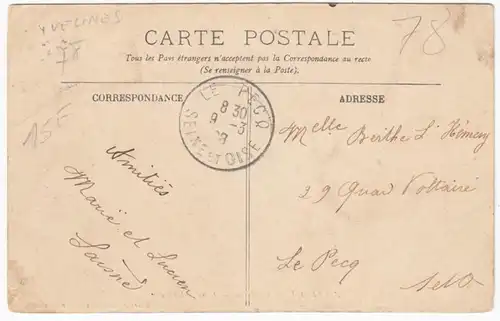 YVELINES
78
78
CARTE POSTALE
Tous les Pays étrangers n'acceptent pas la Correspondance au recto
(Se renseigner à la Poste).
CORRESPONDANCE
ADRESSE
LE PECQ
8 30
9 -3
SEINE ET OISE
15F
Amitiés
Marie et Lucien
Melle Berthe
29 Quai Voltaire
Le Pecq
S et O